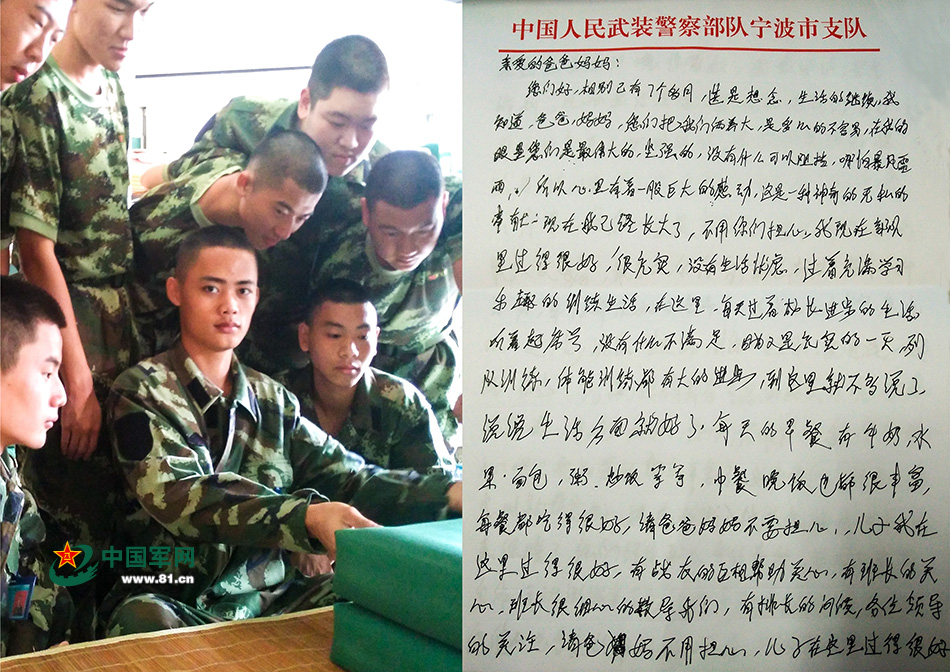 中国军网
www.81.cn
中国人民武装警察部队宁波市支队
亲爱的爸爸妈妈：
您们好，相别已有了个多月，送是想念，生活的继续，我
知道，爸爸，妈妈，您们把我们俩养大，是多么的不容易，在我的
眼里您们是最伟大的，坚强的，没有什么可以阻挡，哪怕暴风雪
雨，所以心里有着一股巨大的感动，这是一种神奇的无私的
现在我已经长大了，不用你们担心，我现在部队
里过得很好，很充实，没有生活忧虑，过着充满学习
乐趣的训练生活，在这里，每天过着成长进步的生活
听着起床号，没有什么不满足，因为又是充实的一天，列
队训练，体能训练都有大的进步，到这里就不多说了
说说生活方面就好了，每天的早餐有牛奶，水
果，面包，粥，炒饭等等，中餐晚饭也都很丰富，
每餐都吃得很好，请爸爸妈妈不要担心，儿子我在
这里过得很好，有战友的互相帮助关心，有班长的关
心，班长很细心的教导我们，有排长的问候，各位领导
的关注，请爸妈不用担心，儿子在这里过得很好